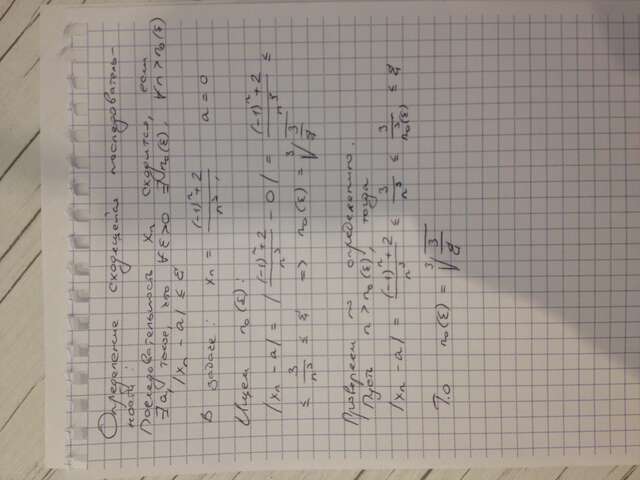 Определение сходящейся последователь-
ности:
Последовательность xₙ сходится, если
∃ a, такое, что ∀ε>0 ∃ n₀(ε), ∀n>n₀(ε)
|xₙ - a| ≤ ε
В задаче: xₙ = ((-1)ⁿ+2)/n³, a = 0
Ищем n₀(ε):
|xₙ - a| = |((-1)ⁿ+2)/n³ - 0| = ((-1)ⁿ+2)/n³ ≤
≤ 3/n³ ≤ ε => n₀(ε) = ∛(3/ε)
Проверяем по определению.
Пусть n > n₀(ε), тогда
|xₙ - a| = ((-1)ⁿ+2)/n³ ≤ 3/n³ ≤ 3/n₀³(ε) ≤ ε
Т.о n₀(ε) = ∛(3/ε)